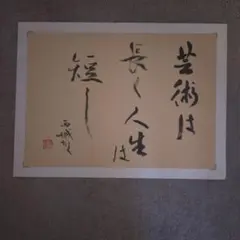 芸術は
長く人生は
短し